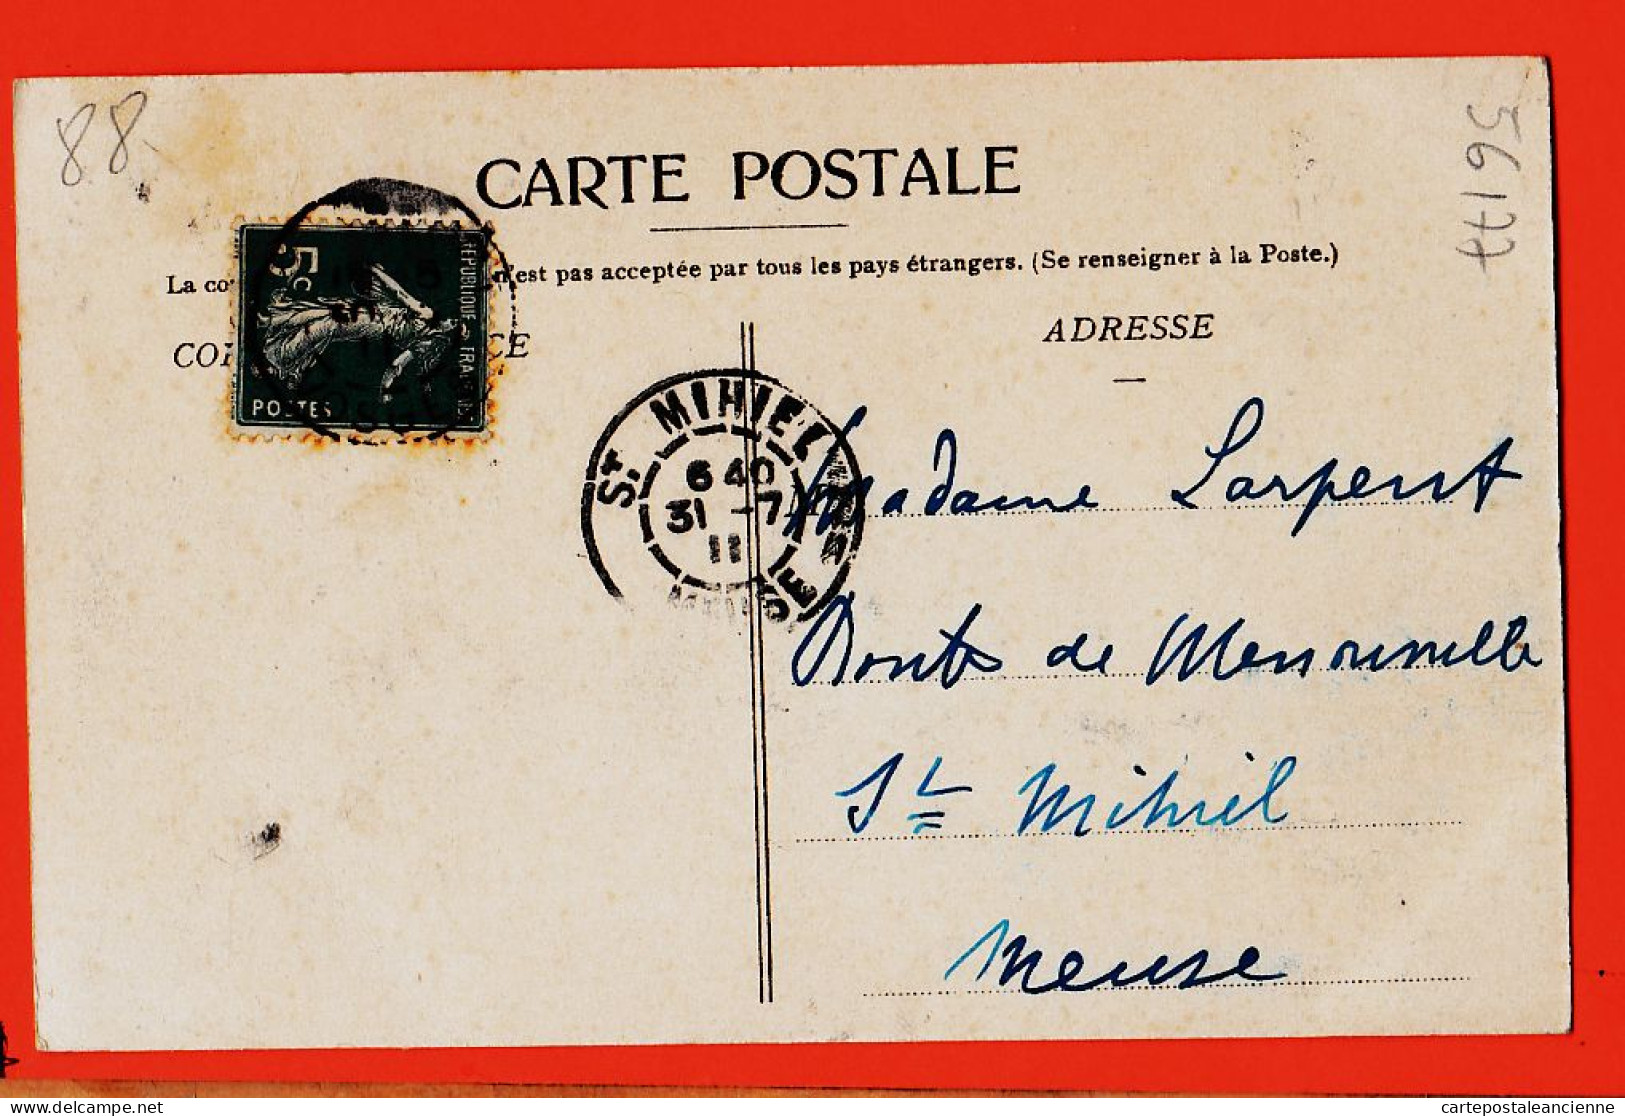 88
56177
CARTE POSTALE
La co n'est pas acceptée par tous les pays étrangers. (Se renseigner à la Poste.)
ADRESSE
CO CE
5c
REPUBLIQUE
POSTES
ST MIHIEL
6 40
31 -7
11
MEUSE
Madame Larpent
de
St Mihiel
Meuse
cartepostaleancienne